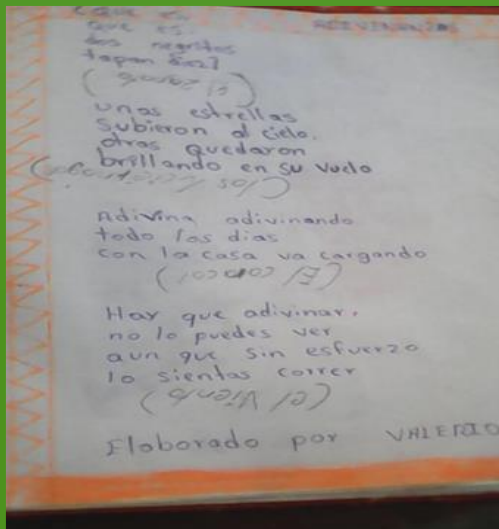 ADIVINANZAS
que es
dos negritos
tapan
unas estrellas
subieron al cielo.
otras quedaron
brillando en su vuelo
(las
Adivina adivinando
todo los dias
con la casa va cargando
(El caracol)
Hay que adivinar.
no lo puedes ver
aun que sin esfuerzo
lo sientas correr
(el viento)
Elaborado por VALERIO